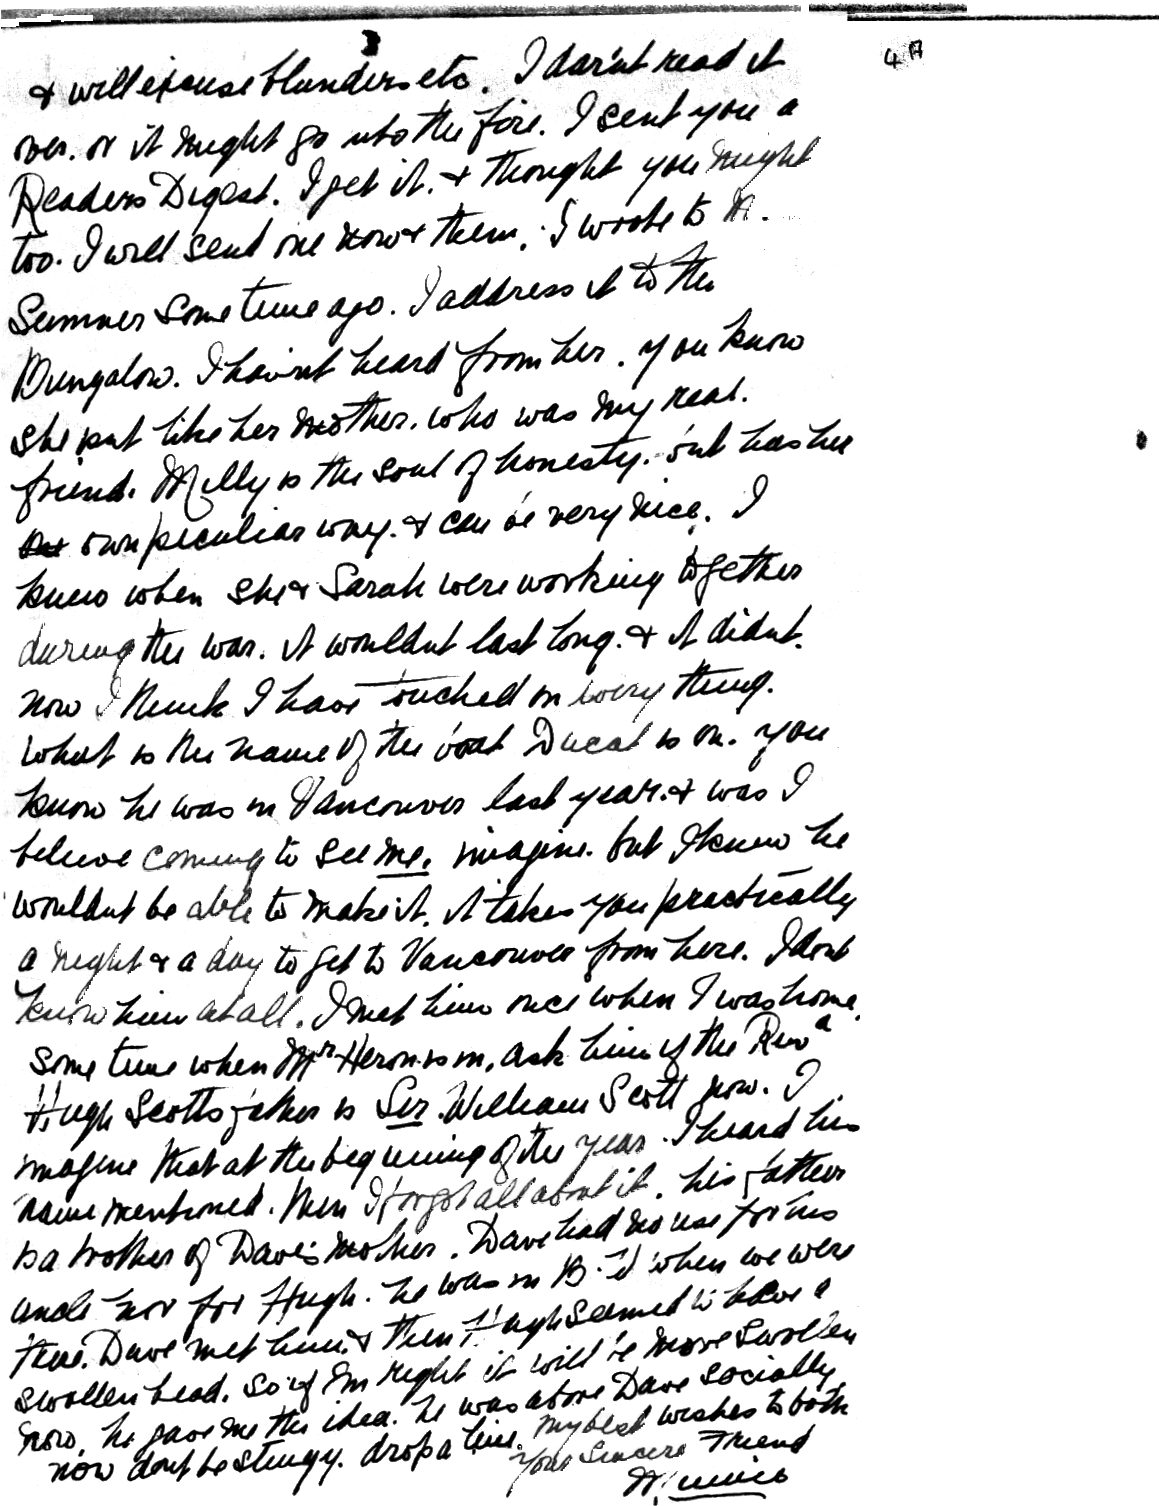 3
4A
& will excuse blunders etc. I dar'nt read it
over. or it might go into the fire. I sent you a
Readers Digest. I get it. & thought you might
too. I will send one now & then. I wrote to M.
Sumner some time ago. I address it to the
Bungalow. I hav'nt heard from her. you know
she isnt like her mother. who was my real.
friend. Milly is the soul of honesty. but has her
own peculiar way. & can be very nice. I
knew when she & Sarah were working together
during the war. it wouldnt last long. & it didnt.
now I think I have touched on every thing.
what is the name of the boat Ducat is on. you
know he was in Vancouver last year. & was I
believe coming to see me. imagine. but I knew he
wouldnt be able to make it. it takes you practically
a night & a day to get to Vancouver from here. I dont
know him at all. I met him once when I was home.
some time when Mr Heron is in, ask him if the Rev a
Hugh Scotts father is Sir William Scott now. I
imagine that at the beginning of the year. I heard his
name mentioned. then I forgot all about it. his father
is a brother of Dave's mother. Dave had no use for his
uncle nor for Hugh. he was in B. when we were
there. Dave met him & then Hugh seemed to have a
swollen head. so if Im right it will be more swollen
now. he gave me the idea. he was above Dave socially
now dont be stingy. drop a line. My best wishes to both
Your Sincere Friend